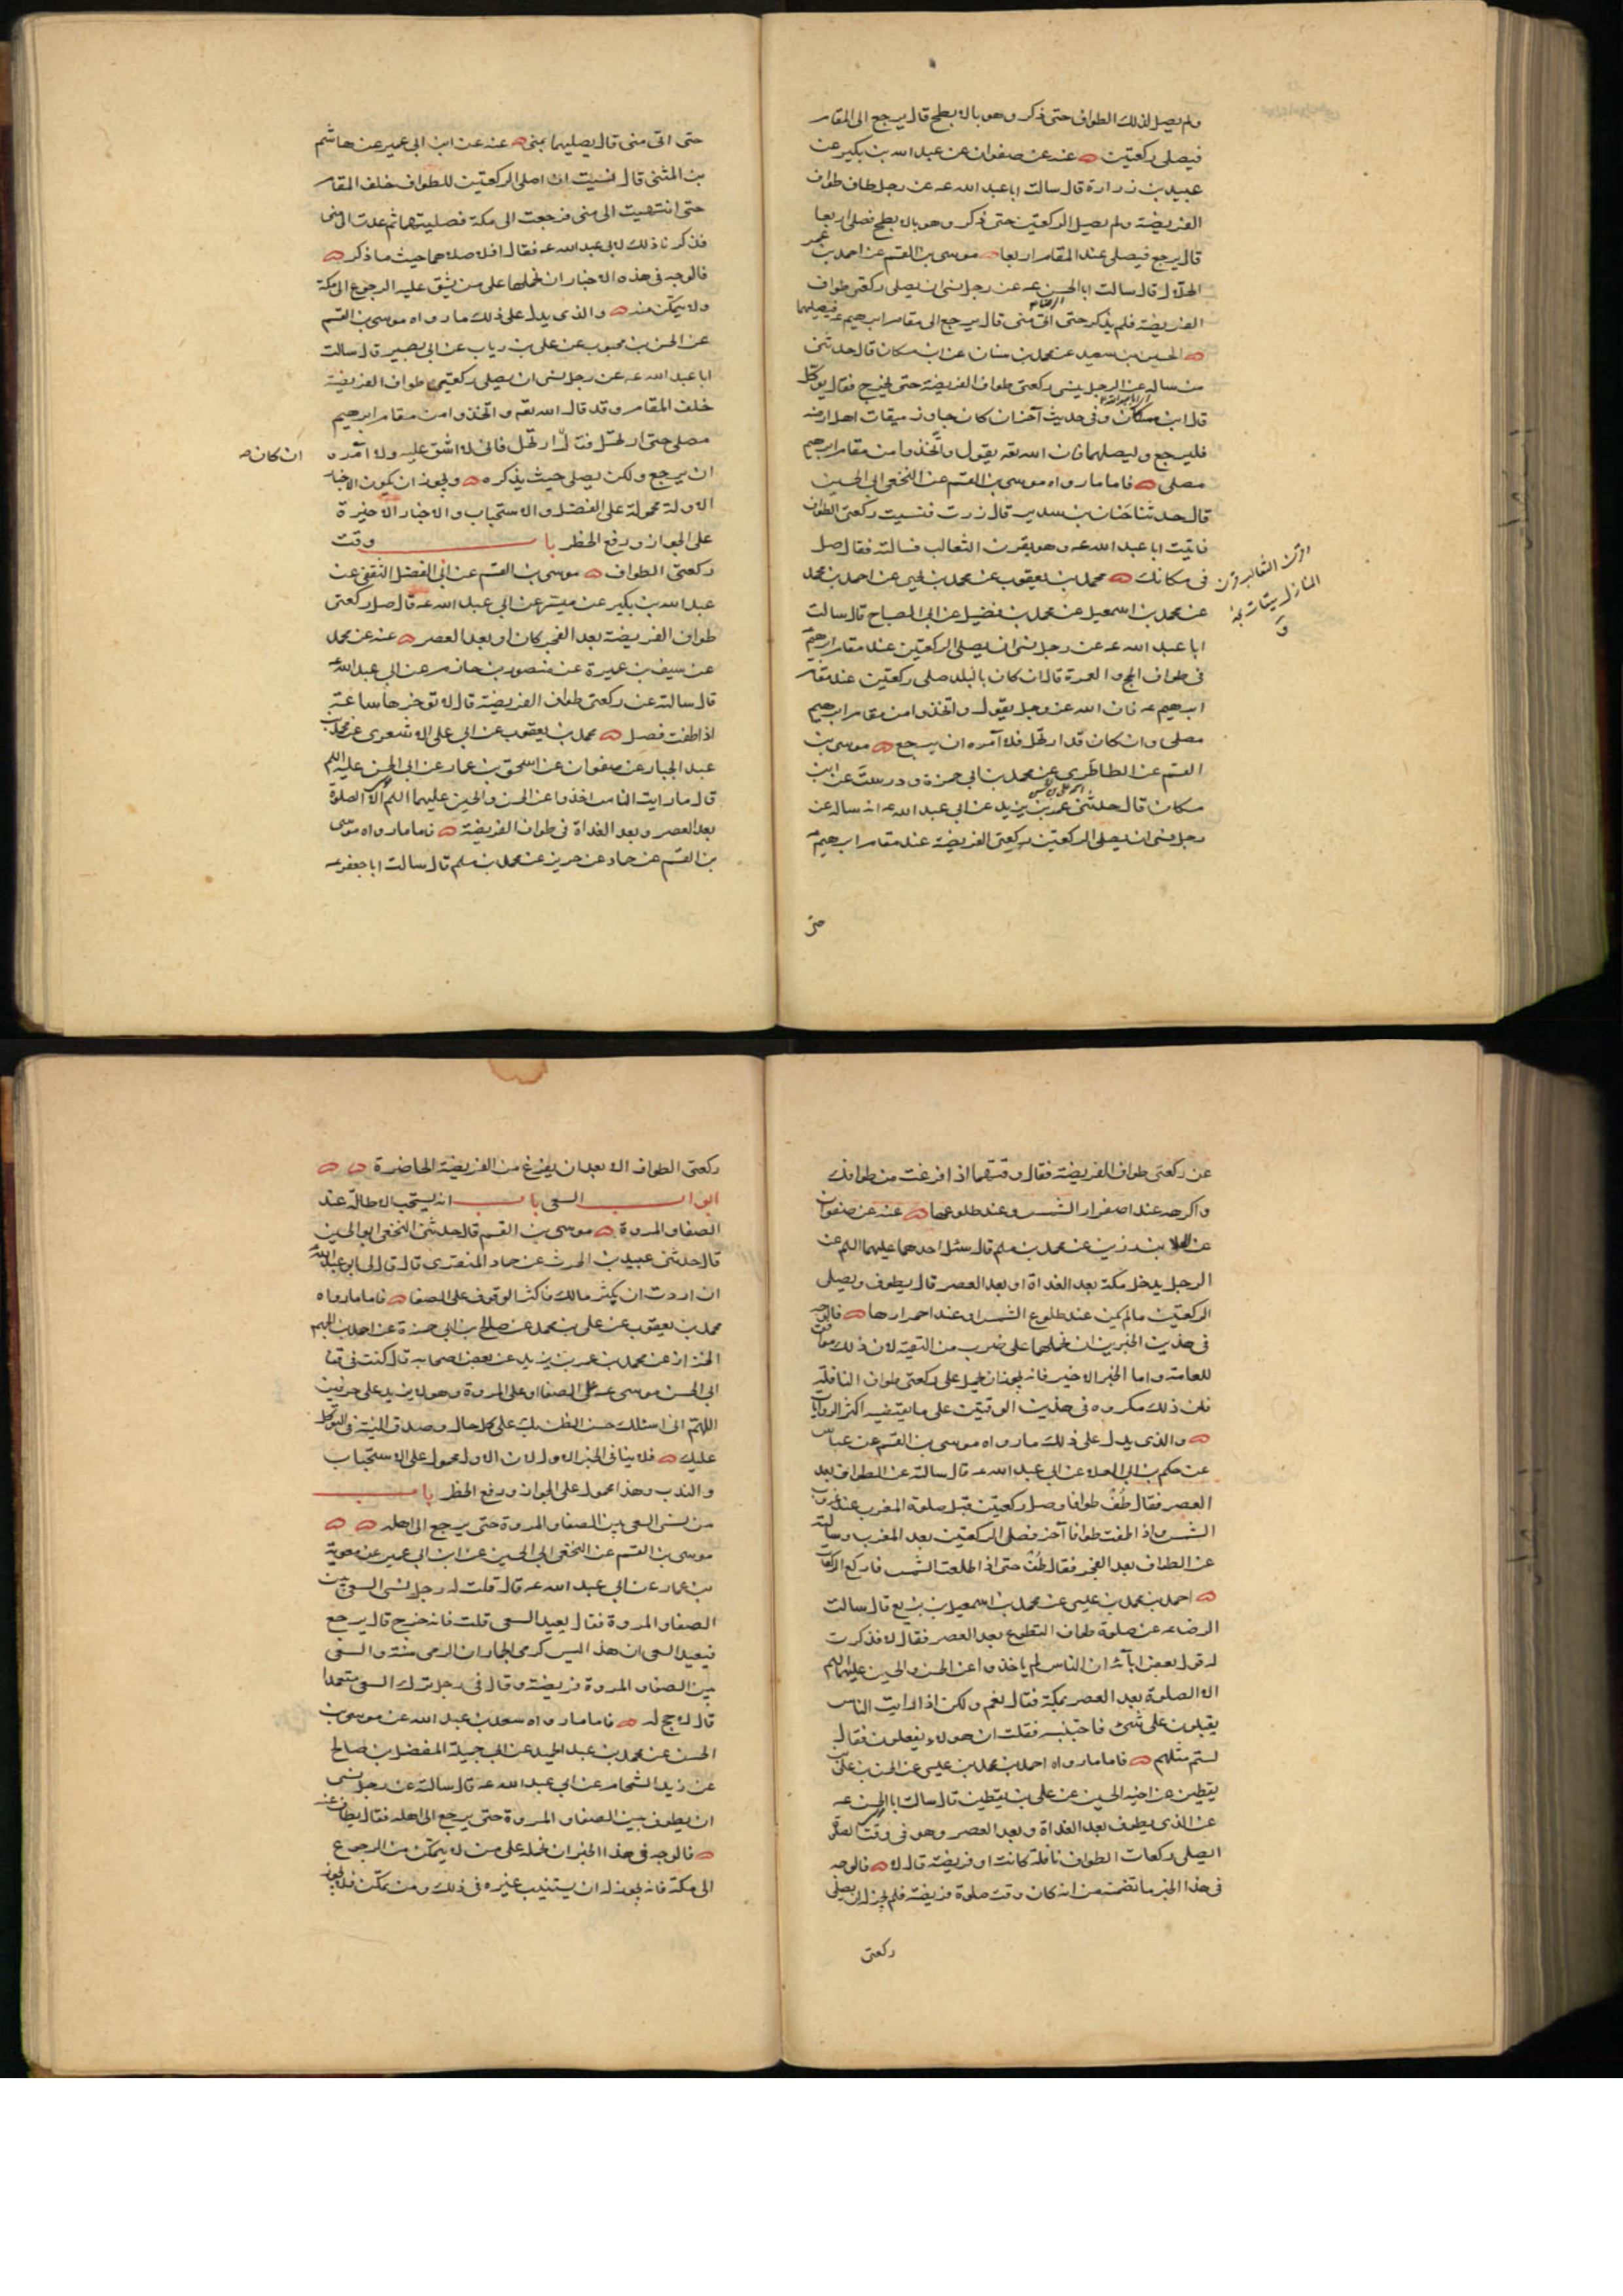 ولم يصل لذلك الطواف حتى ذكر وهو بالابطح قال يرجع الى المقام
فيصلى ركعتين عنه عن صفوان عن عبد الله بن بكير عن
عبيد بن زرارة قال سالت ابا عبد الله عه عن رجل طاف طواف
الفريضة ولم يصل الركعتين حتى ذكر وهو بالابطح فصلى اربعا
قال يرجع فيصلى عند المقام اربعا موسى بن القسم عن احمد بن عمر
الحلال قال سالت ابا الحسن عه عن رجل نسى ان يصلى ركعتى طواف
الفريضة فلم يذكر حتى اتى منى قال يرجع الى مقام ابرهيم عه فيصليهما
الحسين بن سعيد عن محمد بن سنان عن ابن مسكان قال حدثنى
من ساله عن الرجل ينسى ركعتى طواف الفريضة حتى يخرج فقال يوكل
قال ابن مسكان وفى حديث آخر ان كان جاوز ميقات اهل ارضه
فليرجع وليصلهما فان الله تعه يقول واتخذوا من مقام ابرهيم
مصلى فاما ما رواه موسى بن القسم عن النخعى ابى الحسين
قال حدثنا حنان بن سدير قال زرت فنسيت ركعتى الطواف
فاتيت ابا عبد الله عه وهو بقرن الثعالب فسالته فقال صل
فى مكانك محمد بن يعقوب عن محمد بن يحيى عن احمد بن محمد
قرن الثعالب قرن
المنازل ميقات نجد
عن محمد بن اسمعيل عن محمد بن فضيل عن ابى الصباح قال سالت
ابا عبد الله عه عن رجل نسى ان يصلى الركعتين عند مقام ابرهيم
فى طواف الحج والعمرة قال ان كان بالبلد صلى ركعتين عند مقام
ابرهيم عه فان الله عز وجل يقول واتخذوا من مقام ابرهيم
مصلى وان كان قد ارتحل فلا آمره ان يرجع موسى بن
القسم عن الطاطرى عن محمد بن ابى حمزة ودرست عن ابن
مسكان قال حدثنى عمر بن يزيد عن ابى عبد الله عه انه ساله عن
رجل نسى ان يصلى الركعتين ركعتى الفريضة عند مقام ابرهيم
حتى
حتى اتى منى قال يصليهما بمنى عنه عن ابن ابى عمير عن هاشم
بن المثنى قال نسيت ان اصلى الركعتين للطواف خلف المقام
حتى انتهيت الى منى فرجعت الى مكة فصليتهما ثم عدت الى منى
فذكرنا ذلك لابى عبد الله عه فقال افلا صلاهما حيث ما ذكر
فالوجه فى هذه الاخبار ان نحملها على من يشق عليه الرجوع الى مكة
ولا يتمكن منه والذى يدل على ذلك ما رواه موسى بن القسم
عن الحسن بن محبوب عن على بن رياب عن ابى بصير قال سالت
ابا عبد الله عه عن رجل نسى ان يصلى ركعتى طواف الفريضة
خلف المقام وقد قال الله تعه واتخذوا من مقام ابرهيم
مصلى حتى ارتحل فقال ان كان ارتحل فانى لا اشق عليه ولا آمره
ان يرجع ولكن يصلى حيث يذكره ويجوز ان يكون الاخبار
الاولة محمولة على الفضل والاستحباب والاخبار الاخيرة
على الجواز ورفع الحظر باب وقت
ركعتى الطواف موسى بن القسم عن ابى الفضل الثقفى عن
عبد الله بن بكير عن ميسر عن ابى عبد الله عه قال صل ركعتى
طواف الفريضة بعد الفجر كان او بعد العصر عنه عن محمد
عن سيف بن عميرة عن منصور بن حازم عن ابى عبد الله عه
قال سالته عن ركعتى طواف الفريضة قال لا تؤخرها ساعة
اذا طفت فصل محمد بن يعقوب عن ابى على الاشعرى عن محمد بن
عبد الجبار عن صفوان عن اسحق بن عمار عن ابى الحسن عليه السلم
قال ما رايت الناس اخذوا عن الحسن والحسين عليهما السلم الا الصلوة
بعد العصر وبعد الغداة فى طواف الفريضة فاما ما رواه موسى
بن القسم عن حماد عن حريز عن محمد بن مسلم قال سالت ابا جعفر عه
عن ركعتى طواف الفريضة فقال وقتهما اذا فرغت من طوافك
واكرهه عند اصفرار الشمس وعند طلوعها عنه عن صفوان
عن العلا بن رزين عن محمد بن مسلم قال سئل احدهما عليهما السلم عن
الرجل يدخل مكة بعد الغداة او بعد العصر قال يطوف ويصلى
الركعتين ما لم يكن عند طلوع الشمس او عند احمرارها فالوجه
فى هذين الخبرين ان نحملهما على ضرب من التقية لان ذلك موافق
للعامة واما الخبر الاخير فانه يجوز ان يحمل على ركعتى طواف النافلة
فان ذلك مكروه فى هذين الوقتين على ما يقتضيه اكثر الروايات
والذى يدل على ذلك ما رواه موسى بن القسم عن عباس
عن حكم بن ابى العلا عن ابى عبد الله عه قال سالته عن الطواف بعد
العصر فقال طف طوافا وصل ركعتين قبل صلوة المغرب عند غروب
الشمس واذا طفت طوافا آخر فصلى الركعتين بعد المغرب وسالته
عن الطواف بعد الفجر فقال طف حتى اذا طلعت الشمس فاركع الركعات
احمد بن محمد بن عيسى عن محمد بن اسمعيل بن بزيع قال سالت
الرضا عه عن صلوة طواف التطوع بعد العصر فقال لا فذكرت
له قول بعض ابآئه ان الناس لم ياخذوا عن الحسن والحسين عليهما السلم
الا الصلوة بعد العصر بمكة فقال نعم ولكن اذا رايت الناس
يقبلون على شئ فاجتنبه فقلت ان هولاء يفعلون فقال
لستم مثلهم فاما ما رواه احمد بن محمد بن عيسى عن الحسن بن على بن
يقطين عن اخيه الحسين عن على بن يقطين قال سالت ابا الحسن عه
عن الذى يطوف بعد الغداة وبعد العصر وهو فى وقت الصلوة
ايصلى ركعات الطواف نافلة كانت او فريضة قال لا فالوجه
فى هذا الخبر ما تضمنه من انه كان وقت صلوة فريضة فلم يجز له ان يصلى
ركعتى
ركعتى الطواف الا بعد ان يفرغ من الفريضة الحاضرة
ابواب السعى باب انه يستحب الاطالة عند
الصفا والمروة موسى بن القسم قال حدثنى النخعى ابو الحسين
قال حدثنى عبيد بن الحرث عن حماد المنقرى قال قال لى ابو عبد الله عه
ان اردت ان يكثر مالك فاكثر الوقوف على الصفا فاما ما رواه
محمد بن يعقوب عن على بن محمد عن صالح بن ابى حمزة عن احمد بن الجهم
الخزاز عن محمد بن عمر بن يزيد عن بعض اصحابه قال كنت فى قفا
ابى الحسن موسى عه على الصفا او على المروة وهو لا يزيد على حرفين
اللهم انى اسئلك حسن الظن بك على كل حال وصدق النية فى التوكل
عليك فلا ينافى الخبر الاول لان الاول محمول على الاستحباب
والندب وهذا محمول على الجواز ورفع الحظر باب
من نسى السعى بين الصفا والمروة حتى يرجع الى اهله
موسى بن القسم عن النخعى ابى الحسين عن ابن ابى عمير عن معوية
بن عمار عن ابى عبد الله عه قال قلت له رجل نسى السعى بين
الصفا والمروة فقال يعيد السعى قلت فانه خرج قال يرجع
فيعيد السعى ان هذا ليس كرمى الجمار ان الرمى سنة والسعى
بين الصفا والمروة فريضة وقال فى رجل ترك السعى متعمدا
قال لا حج له فاما ما رواه سعد بن عبد الله عن موسى بن
الحسن عن محمد بن عبد الحميد عن ابى جميلة المفضل بن صالح
عن زيد الشحام عن ابى عبد الله عه قال سالته عن رجل نسى
ان يطوف بين الصفا والمروة حتى يرجع الى اهله فقال يطاف عنه
فالوجه فى هذا الخبر ان نحمله على من لا يتمكن من الرجوع
الى مكة فانه يجوز له ان يستنيب غيره فى ذلك ومن يتمكن فلا يجوز